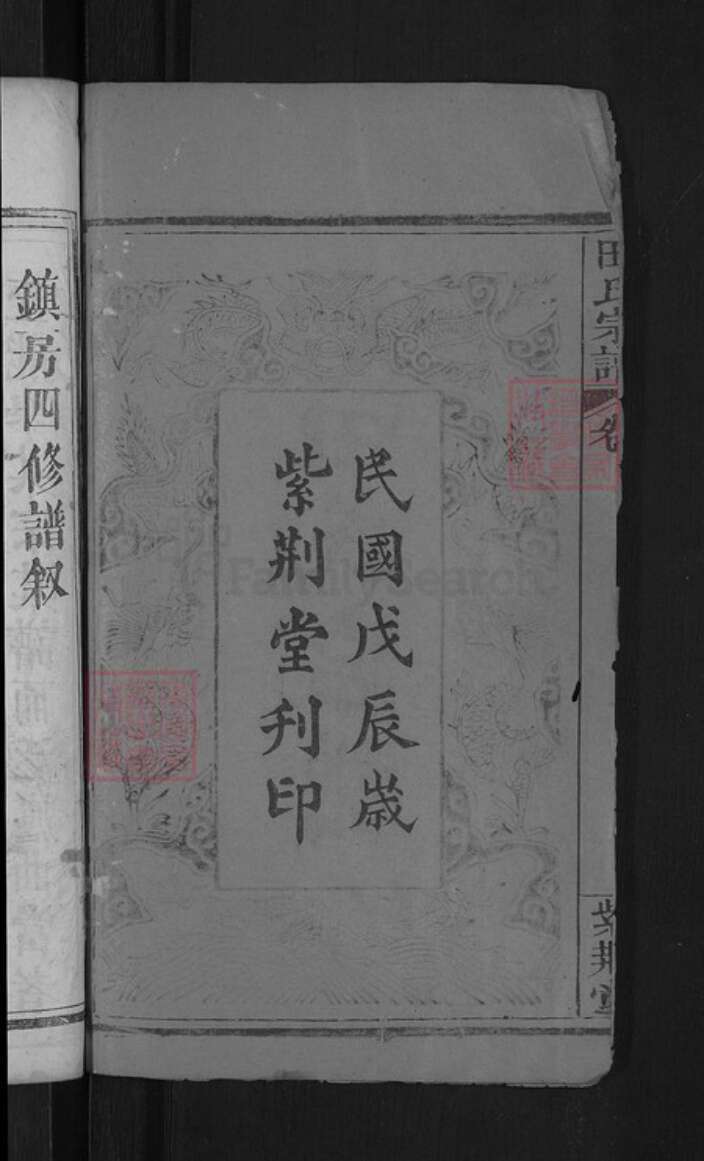 田氏宗譜
卷
紫荆堂
民國戊辰歲
紫荆堂刋印
鎮房四修譜叙
FamilySearch